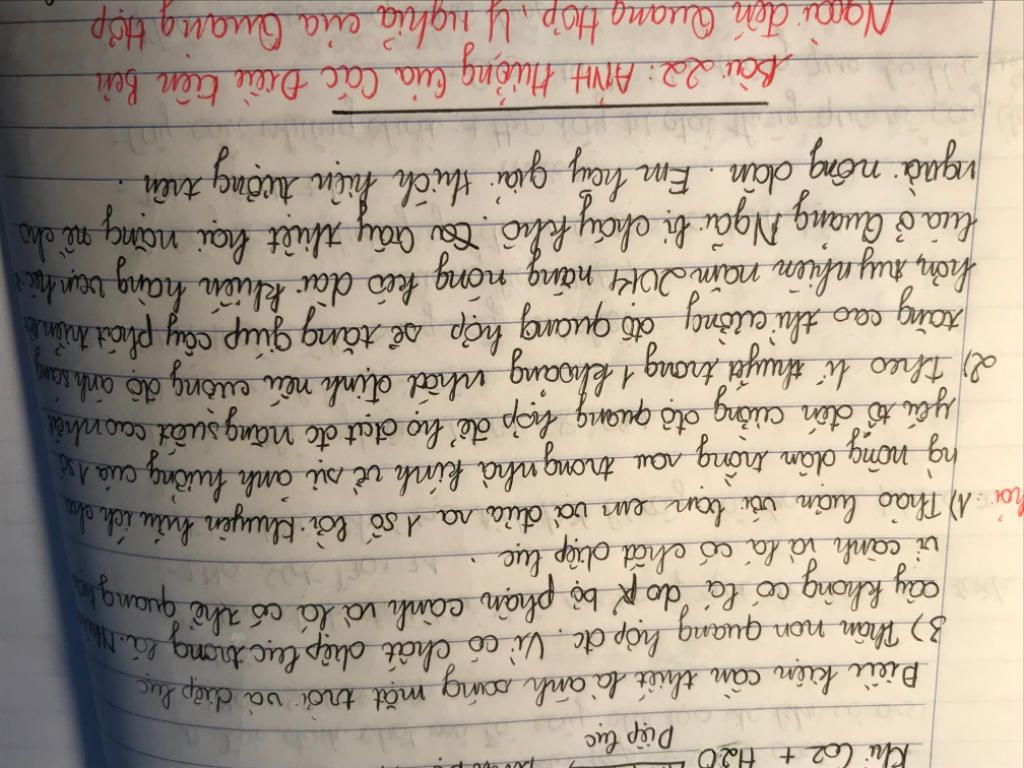 Khí CO2 + H2O
Diệp lục
Điều kiện cần thiết là ánh sáng mặt trời và diệp lục
3) Thân non quang hợp đc. Vì có chất diệp lục trong lá. Nhữ
cây không có lá do bộ phận cành và lá có thể quang hợp
vì cành và lá có chất diệp lục.
1) Thảo luận với bạn em và đưa ra 1 số lời khuyên hữu ích cho
ng nông dân trồng rau trong nhà kính về sự ảnh hưởng của 1 số
yếu tố đến cường độ quang hợp để họ đạt đc năng suất cao nhất
2) Theo lí thuyết trong 1 khoảng nhất định nếu cường độ ánh sáng
tăng cao thì cường độ quang hợp sẽ tăng giúp cây phát triển
hơn, tuy nhiên năm 2014 nắng nóng kéo dài khiến hàng
lúa ở Quảng Ngãi bị cháy khô. Gây thiệt hại nặng nề cho
người nông dân. Em hãy giải thích hiện tượng trên.
Bài 22: Ảnh Hưởng Của Các Điều Kiện Bên
Ngoài đến Quang Hợp, Ý nghĩa của Quang Hợp